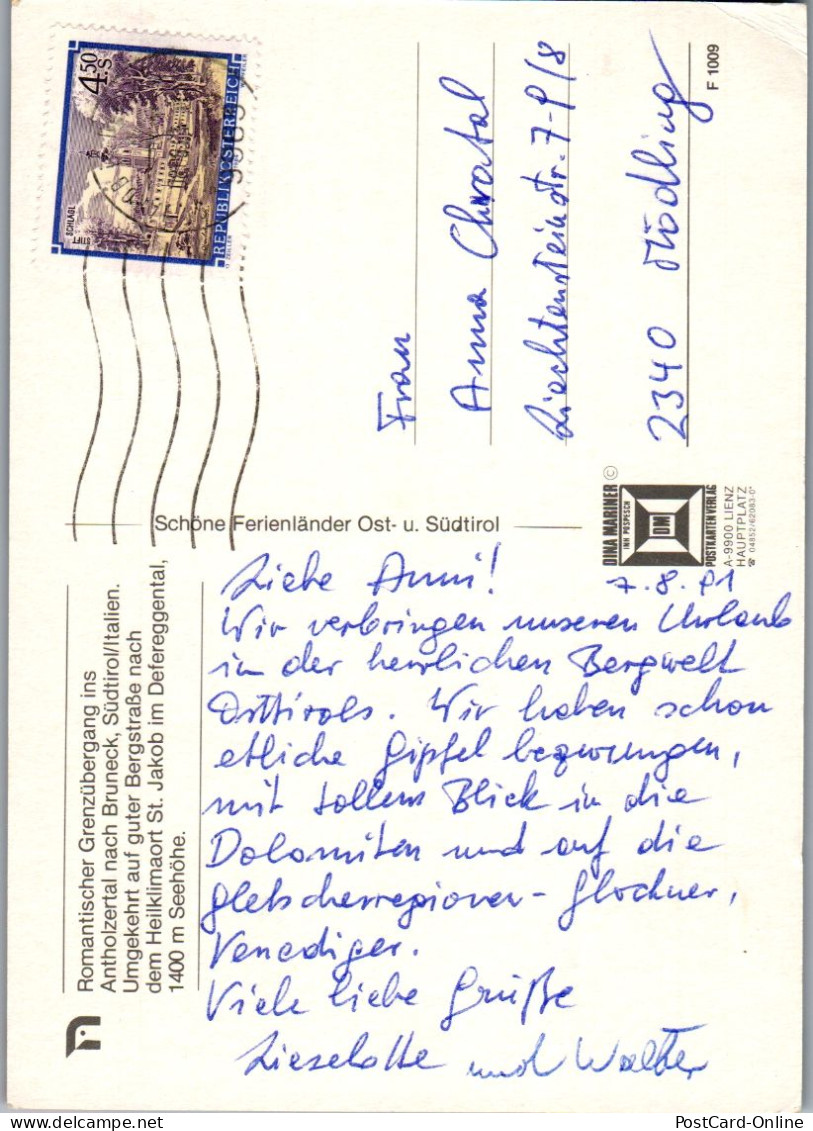 Romantischer Grenzübergang ins
Antholzertal nach Bruneck, Südtirol/Italien.
Umgekehrt auf guter Bergstraße nach
dem Heilklimaort St. Jakob im Defereggental,
1400 m Seehöhe.
Liebe Anni!
7.8.91
Wir verbringen unseren Urlaub
in der herrlichen Bergwelt
Osttirols. Wir haben schon
etliche Gipfel bezwungen,
mit tollem Blick in die
Dolomiten und auf die
Gletscherregionen - Glockner,
Venediger.
Viele liebe Grüße
Lieselotte und Walter
Schöne Ferienländer Ost- u. Südtirol
DINA MARINER ©
INH POSPESCH
DM
POSTKARTEN VERLAG
A-9900 LIENZ
HAUPTPLATZ
☎ 04852/62083-0*
4.50 S
STIFT SCHLÄGL
REPUBLIK ÖSTERREICH
Frau
Anna Chvatal
Liechtensteinstr. 7-9/8
2340 Mödling
F 1009
PostCard-Online